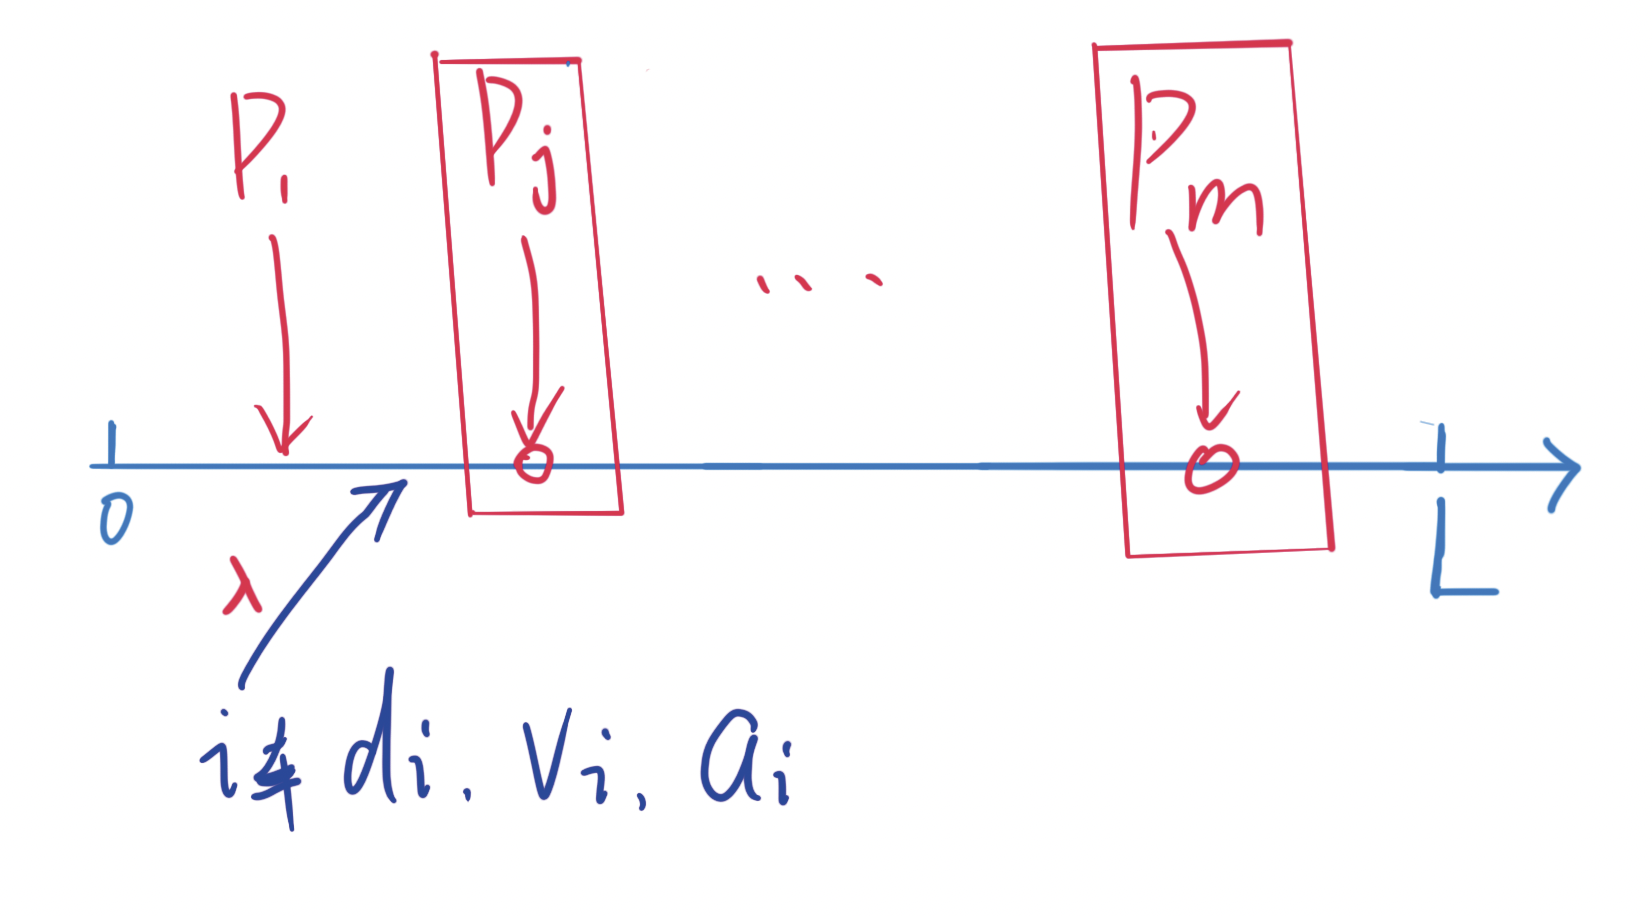 P₁ Pⱼ ... Pₘ
0 L
λ
i车 dᵢ. Vᵢ. aᵢ